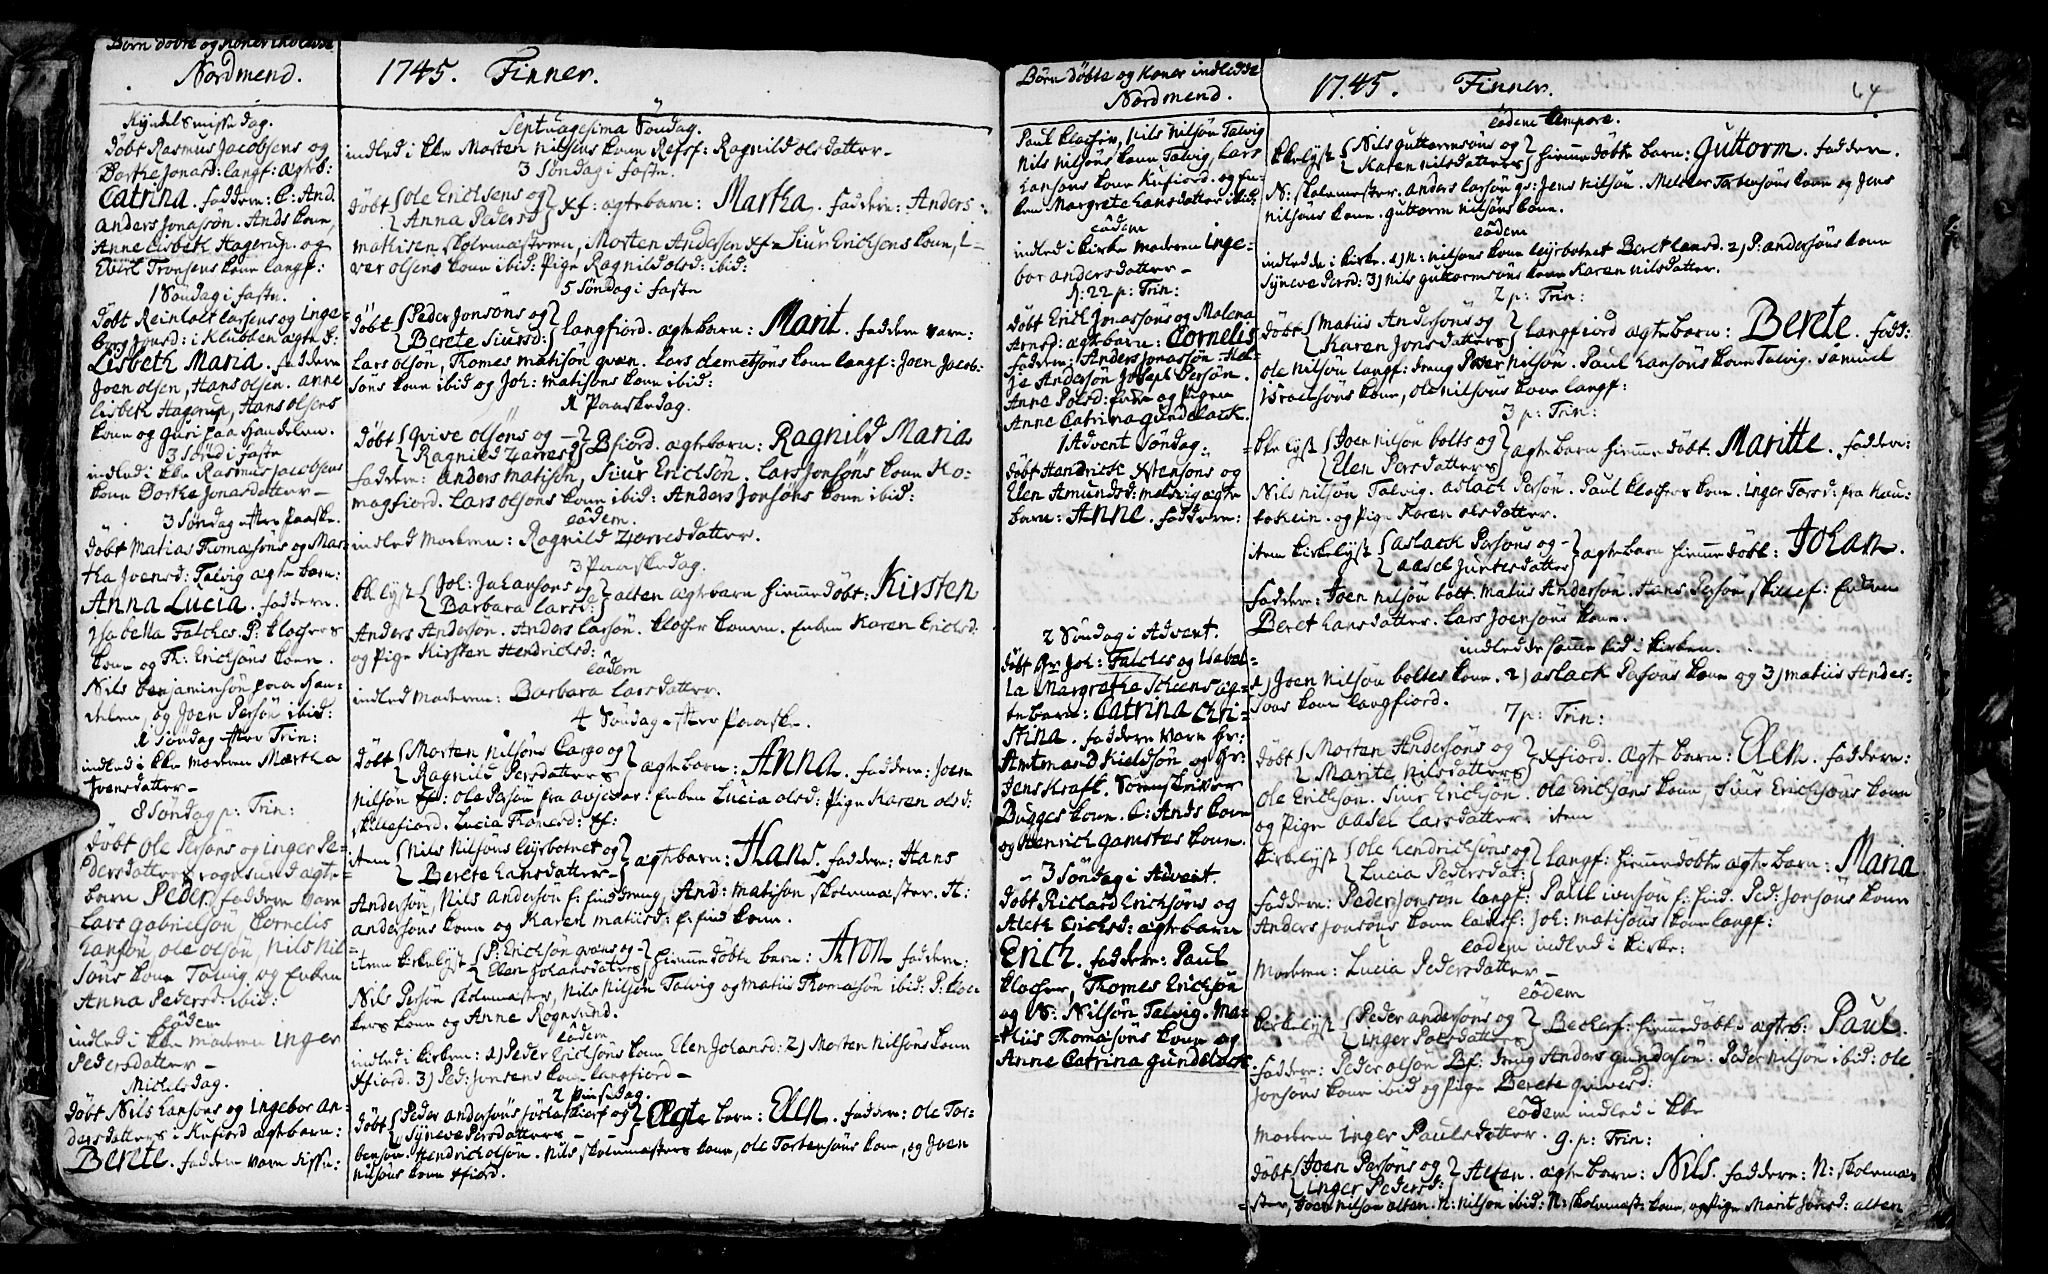 Børn døbte og Koner indledde
Nordmend.
Kyndelsmisse dag.
døbt Rasmus Jacobsens og
Dorthe Jonasd: langf: ægteb:
Catrina. faddern: C: And.
Anders Jonassøn. Ands kone,
Anne Lisbeth Hagerup. og
Evert Tronsens kone langf:
1 Søndag i faste.
døbt Reinholt Larsens og Inge-
borg Jonsd: i Klubben ægte b:
Lisbeth Maria. faddern
Joen olsen, Hans olsen. anne
lisbeth Hagerup, Hans olsens
kone og Guri paa Handelen.
3 Sønd i faste
indled i kke Rasmus Jacobsens
kone Dorthe Jonasdatter—
3 Søndag efter Paaske.
døbt Matias Thomasøns og Mar-
tha Joensd: Talvig ægte barn:
Anna Lucia. faddern.
Isabella Falches. P: klochers
kone og Th: Ericksøns kone.
Nils benjaminsøn paa Han-
delen, og Joen Persøn ibid:
1 Søndag efter Trin:
indled i kke modren Mærtha
Joensdatter—
8 Søndag p: Trin:
døbt Ole Persøns og inger Pe-
dersdatters rognsund ægte
barn Peder. faddern varn
Lars gabrielsøn Cornelis
hansøn, ole olsøn, Nils Nil
søns kone Talvig og Enken
Anna Pedersd: ibid:
eôdem
indled i kke modren inger
Pedersdatter—
Michelsdag.
døbt Nils hansøns og Ingebor an-
dersdatters i Kafiord ægte barn:
Berete. faddern varn disse:
1745. Finner.
Septuagesima Søndag.
indled i kke Morten Nilsens kone Refsf: Ragnild olsdatter—
3 Søndag i faste.
døbt Ole Ericksens og
Anna Pedersd xf: ægtebarn: Martha. faddern: Anders
mathisen skolemasteren, Morten Andersen xf= Siur Ericksens kone, I-
ver olsens kone ibid: Pige Ragnild olsd: ibid:
5 Søndag i faste
døbt Peder Jonsøns og
Berete Siursd: langfiord. ægte barn: Marit. faddern varn:
Lars olsøn, Thomes matisøn qvæn. Lars clemetsøns kone langf: Joen Jacob-
søns kone ibid og Joh: matisøns kone ibid:
1 Paaskedag.
døbt Qvive olsøns og —
Ragnild Zarresd Bfiord. ægtebarn: Ragnild Maria
faddern: Anders matisen, Siur Ericksøn. Lars Jonsøns kone Ko-
magfiord. Lars olsøns kone ibid: Anders Jonsøns kone ibid:
eôdem.
indled modren: Ragnild Zarresdatter.
3 Paaskedag.
kkelyst Joh: Johansøns og
Barbara Larsd: alten ægtebarn hiemmedøbt: Kirsten
Anders Andersøn. Anders Larsøn. klocher konen. Enken Karen Ericksd:
og Pige Kirsten Hendricksd:
eôdem
indled modren: Barbara Larsdatter.
4 Søndag efter Paaske.
døbt Morten Nilsøns Cargo og
Ragnild Persdatters ægte barn: Anna. faddern: Joen
Nilsøn xf: Ole Persøn fra avjevar. Enken Lucia olsd: Pige Karen olsd:
skillefiord. Lucia Thomesd: xf:
item Nils Nilsøns leyrbotnet og
Berete Hansdatters— ægte barn: Hans. faddern: Hans
Andersøn, Nils Andersøn f: find dreng, And: matisøn skolemaster. H:
andersøns kone og Karen matiisd: f: find kone.
item kirkelyst P: Ericksøn qvæns og
Elen Johansdatters hiemmedøbte barn: Aron faddern:
Nils Persøn skolemaster, Nils Nilsøn Talvig og matiis Thomasøn ibid: P: kloc-
kers kone og Anne Rognsund.
eôdem
indled i kirken: 1) Peder Ericksøns kone Elen Johansd: 2) Morten Nilsøns kone
xfiord. 3) Ped: Jonsens kone langfiord—
2 Pinsedag.
døbt Peder andersøns og
Syneve Persdatters— Ægte barn: Elen. faddern: Ole Tor-
bensøn. Hendrick olsøn. Nils skolemasters kone, ole Torbensøns kone, og Joen
nilsøns kone xfiord.
Børn døbte og Koner indledde
Nordmend.
Paul klocher, Nils Nilsøn Talvig
Nils Nilsøns kone Talvig, Lars
Hansøns kone Kafiord. og En-
ken Margrete Hansdatter ibid:
eôdem
indled i kirke modren inge-
bor andersdatter—
D: 22 p: Trin:
døbt Erich Jonasøns og Malena
Arnsd: ægte barn: Cornelis
faddern: Anders Jonasøn. Hel-
ge Andersøn Joseph Persøn.
Anne Polsd: og Pigen
Anne Catrina gundelack.
1 Advent Søndag:
døbt Hendrick Xstensøns og
Elen Amundsd: melsvig ægte
barn: ANNE. faddern:
2 Søndag i Advent.
døbt Hr Joh: Falches og Isabel-
la Margretha Scheens æg-
te barn: Catrina Chri-
stina. faddern varn Hr:
Amtmand Kieldsøn og Hr:
Jens Kraft. Sorenskriver
Bugges kone. C: Ands kone
og Henrich gamstes kone.
3 Søndag i Advent.
døbt Richard Ericksøns og
Aleth Ericksd: ægte barn
Erich. faddern: Paul
klocher, Thomes Ericksøn
og N: Nilsøn Talvig. Ma-
thiis Thomasøns kone og
Anne Catrina gundelack.
1745. Finner.
64
eôdem tempore.
kkelyst Nils Guttormsøns og
Karen Nilsdatters hiemmedøbte barn: Guttorm. faddern.
N: skolemester. anders larsøn gs: Jens Nilsøn. Melcior Torbensøns kone og Jens
nilsøns kone. guttorm nilsøns kone.
eôdem
indledde i kirke. 1) N: nilsøns kone leyrbotnet Beret hansd. 2) P: andersøns kone
Syneve Persd: 3) Nils guttormsøns kone Karen Nilsdatter.
2 p: Trin:
døbt Matiis Andersøns og
Karen Jonsdatters langfiord ægte barn: Berete. fadd:
ole Nilsøn langf: dreng Peder Nilsøn. Paul hansøns kone Talvig. Samuel
Israelsøns kone, ole Nilsøns kone langf:
3 p: Trin:
kkelyst Joen Nilsøn bolts og
Elen Persdatters ægte barn hiemmedøbt: Maritte. faddern:
Nils Nilsøn Talvig. aslack Persøn. Paul klochers kone. Inger Tarsd: fra Kau-
tokein. og Pige Karen olsdatter.
item kirkelyst aslack Persøns og—
aasel Juntesdatters ægte barn hiemmedøbt: Johan.
faddern: Joen Nilsøn bolt. Matiis Andersøn. Hans Persøn skillef: Enken
Beret Hansdatter. Lars Joensøns kone.
indledde samme tid i kirken.
1) Joen Nilsøn boltes kone. 2) aslack Persøns kone og 3) matiis Ander-
søns kone langfiord.
7 p: Trin:
døbt Morten Andersøns og
Marite Nilsdatters xfiord. ægte barn: Elen. faddern:
Ole Ericksøn. Siur Ericksøn. Ole Ericksøns kone, Siur Ericksøns kone
og Pige aasel Larsdatter. item
kirkelyst Ole Hendricksøns og
Lucia Pedersdat: langf: hiemmedøbte ægte barn: Maria
faddern: Peder Jonsøn langf: Paul iversøn f: find. Ped: Jonsøns kone
Anders Jonsøns kone langf: Joh: matisøns kone langf:
eôdem indled i kirke:
modren: Lucia Pedersdatter—
eôdem
kirkelyst Peder andersøns og
inger Polsdatters Beckerf: hiemmedøbt ægteb: Paul.
faddern: Peder olsøn Bf: dreng Anders gundersøn: Peder nilsøn ibid: ole
Jonsøns kone ibid og Pige Berete qvivesd:
eôdem indled i kke
modren inger Paulsdatter. 9. p: Trin:
døbt Joen Persøns og
inger Pedersd: Alten. ægte barn: Nils. faddern: N: skolema-
ster, Joen Nilsøn alten. N: Nilsøn ibid: N: skolemast: kone, og Pige Marit Jonsd: alten